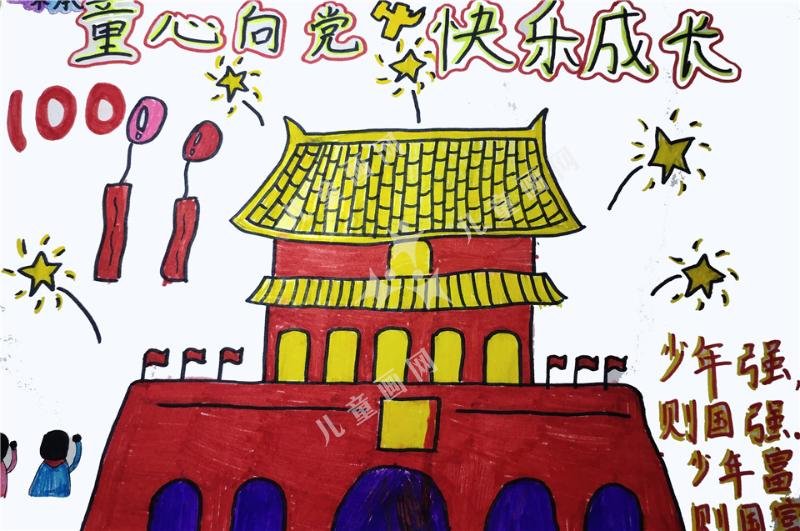 童心向党 快乐成长
100
少年强,
则国强.
少年富
则国富
儿童画网
儿童画网
儿童画网
儿童画网